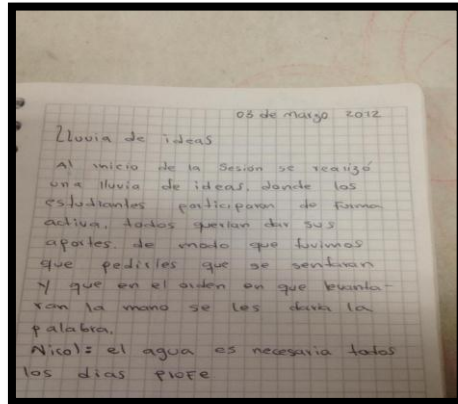 03 de Marzo 2012
Lluvia de ideas
Al inicio de la Sesion se realizó
una lluvia de ideas, donde los
estudiantes participaron de forma
activa, todos querian dar sus
aportes, de modo que tuvimos
que pedirles que se sentaran
y que en el orden en que levanta-
ran la mano se les daria la
palabra.
Nicol: el agua es necesaria todos
los dias profe